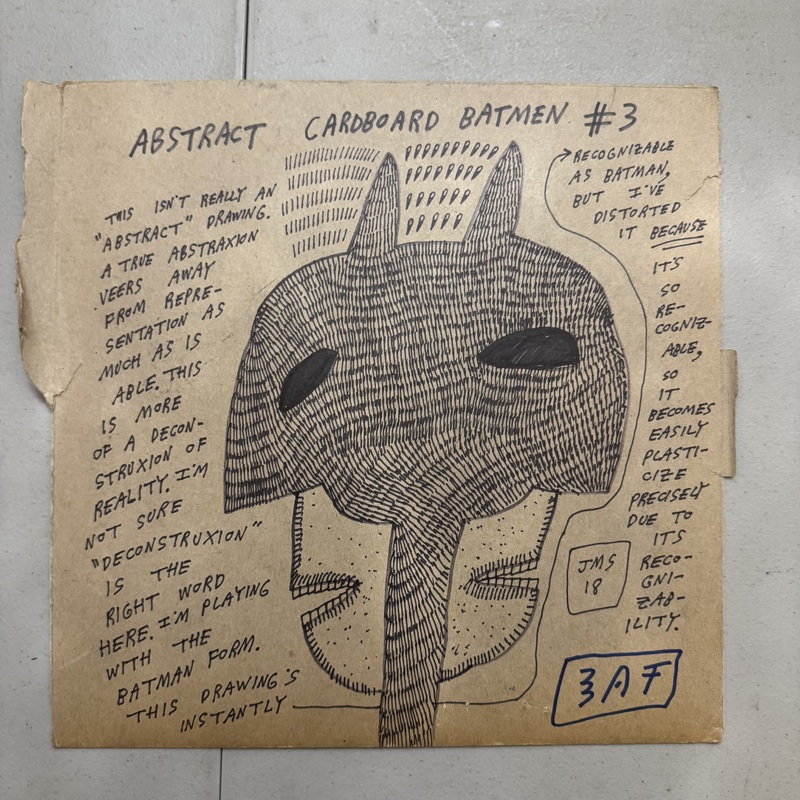 ABSTRACT CARDBOARD BATMEN #3
THIS ISN'T REALLY AN
"ABSTRACT" DRAWING.
A TRUE ABSTRAXION
VEERS AWAY
FROM REPRE-
SENTATION AS
MUCH AS IS
ABLE. THIS
IS MORE
OF A DECON-
STRUXION OF
REALITY. I'M
NOT SURE
"DECONSTRUXION"
IS THE
RIGHT WORD
HERE. I'M PLAYING
WITH THE
BATMAN FORM.
THIS DRAWING'S
INSTANTLY
RECOGNIZABLE
AS BATMAN,
BUT I'VE
DISTORTED
IT BECAUSE
IT'S
SO
RE-
COGNIZ-
ABLE,
SO
IT
BECOMES
EASILY
PLASTI-
CIZE
PRECISELY
DUE TO
ITS
RECO-
GNI-
ZAB-
ILITY.
JMS
18
3AF